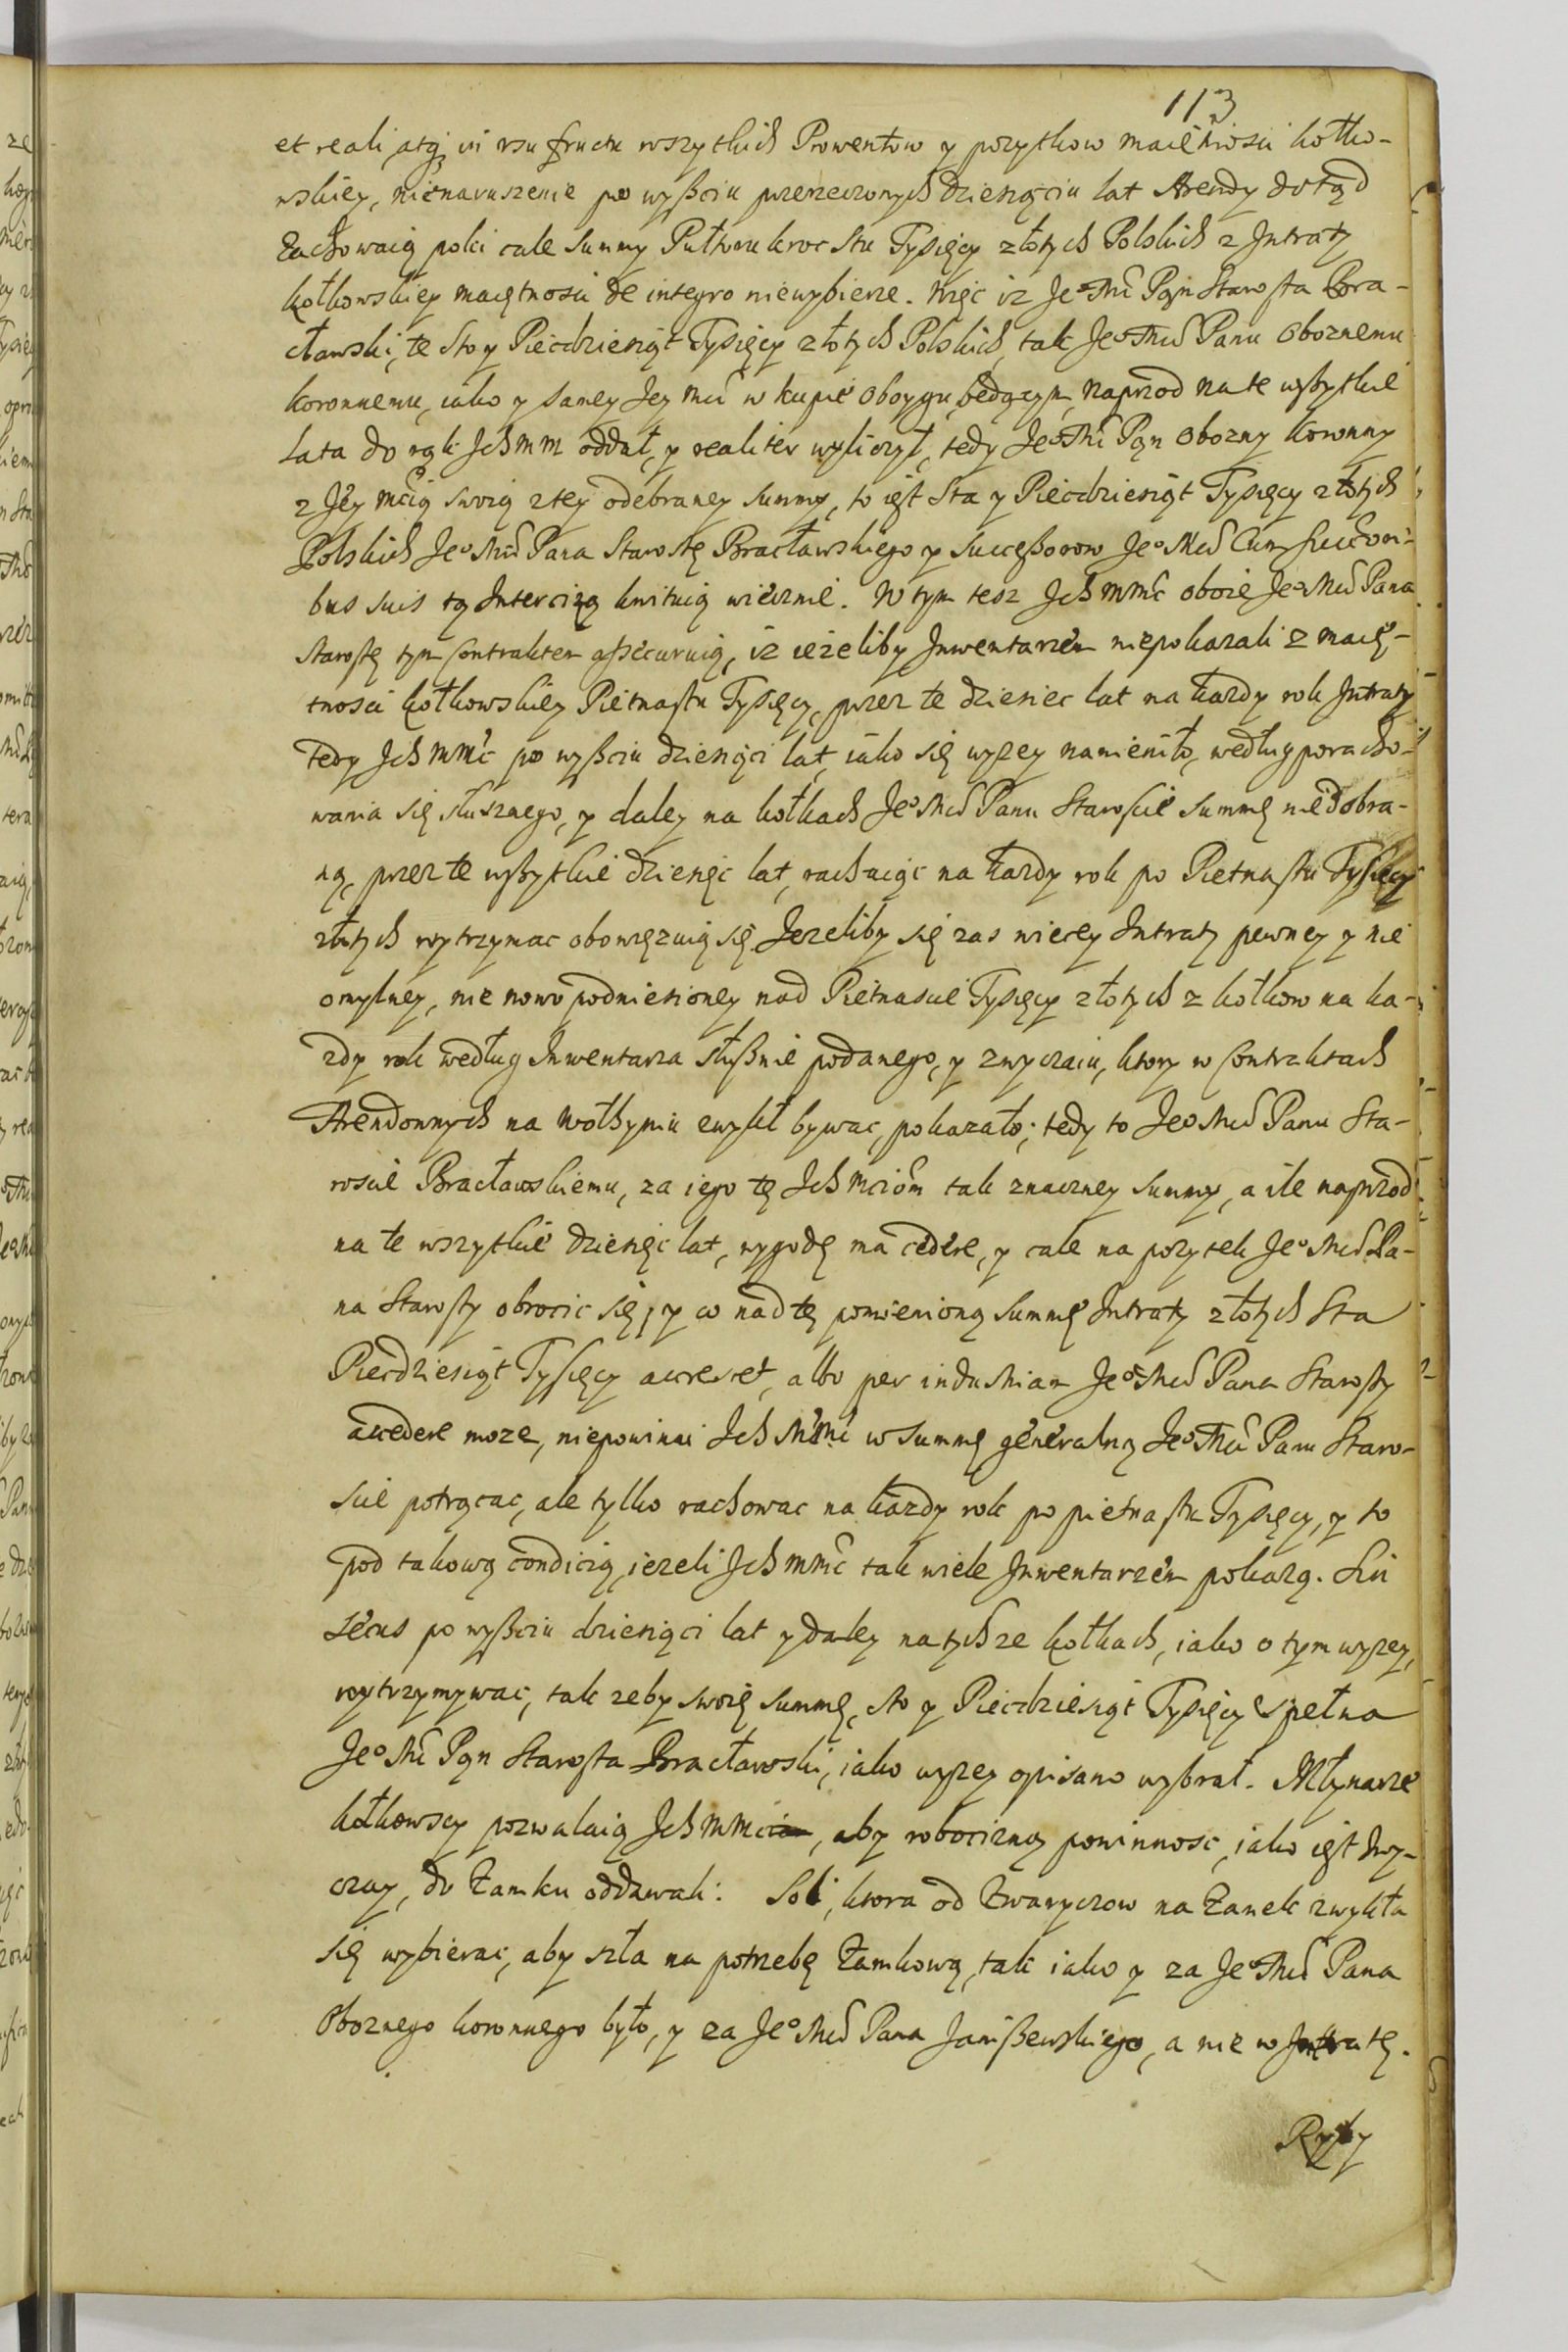 113
et reali atq; in usu fructu wszytkich Prowentow y pozytkow maiętnosci kotko-
wskiey, nienaruszenie po wyßciu przerzeczonych dziesiąciu lat Arendy dotąd
zachowaią poki cale Summy Pułtora kroc Sta Tysięcy złotych Polskich z Intraty
kotkowskiey maiętnosci de integro niewybierze. Więc iz Jeo Mć Pąn Starosta Bra-
cławski, te Sto y Piecdziesiąt Tysięcy złotych Polskich, tak Jeo Mci Panu Oboznemu
koronnemu, iako y samey Jey Mci w kupie oboygu będącym, naprzod na te wßytkie
lata do rąk Ich MM oddał, y realiter wyliczył, tedy Jeo Mć Pąn Obozny koronny
z Jey Mcią swoią z tey odebraney summy, to iest Sta y Piecdziesiąt Tysięcy złotych
Polskich Jeo Mci Pana Starostę Bracławskiego y Successorow Jeo Mci Cum Successori-
bus suis tą Intercizą kwituią wiecznie. W tym tesz Ich MMć oboie Jeo Mci Pana
Starostę tym Contraktem assecuruią, iz iezeliby Inwentarzem niepokazali z maię-
tnosci kotkowskiey Pietnastu Tysięcy, przez te dziesiec lat na kazdy rok Intraty
tedy Ich MMć po wyßciu dziesiąci lat, iako się wyzey namieniło, według poracho-
wania się słusznego, y daley na kotkach Jeo Mci Panu Staroscie Summę niedobra-
ną, przez te wßytkie dziesięc lat, rachuiąc na kazdy rok po Pietnastu Tysięcy
złotych wytrzymac obowięzuią się Jezeliby się zas wiecey Intraty pewney y nie
omylney, nie nowo podniesioney nad Pietnascie Tysięcy złotych z kotkow na ka-
zdy rok według Inwentarza słußnie podanego, y zwyczaiu, ktory w Contraktach
Arendownych na Wołhyniu zwykł bywac, pokazało; tedy to Jeo Mci Panu Sta-
roscie Bracławskiemu, za iego tę Ich Mciom tak znaczney Summy, a ile naprzod
na te wszytkie dziesięc lat, wygodę ma cedere, y cale na pozytek Jeo Mci Pa-
na Starosty obrocic się, y co nad tę pomienioną Summę Intraty złotych Sta
Piecdziesiąt Tysięcy accrescet, albo per industriam Jeo Mci Pana Starosty
accedere moze, niepowinni Ich MMć w Summę generalną Jeo Mci Panu Staro-
scie potrącac, ale tylko rachowac na kazdy rok po pietnastu Tysięcy, y to
pod takową condicią, iezeli Ich MMć tak wiele Inwentarzem pokazą. Sin
secus po wyßciu dziesiąci lat y daley na tychze kotkach, iako o tym wyzey,
wytrzymywac, tak zeby swoię Summę, sto y Piecdziesiąt Tysięcy spełna
Jeo Mć Pąn Starosta Bracławski, iako wyzey opisano wybrał. Młynarze
kotkowscy pozwalaią Ich MMci, aby robocizną powinnosc, iako iest zwy-
czay, do Zamku oddawali: Sol, ktora od Zwaryczow na Zamek zwykła
się wybierac, aby szła na potrzebę Zamkową, tak iako y za Jeo Mci Pana
Oboznego koronnego było, y za Jeo Mci Pana Janißewskiego, a nie w Intratę.
Ryby